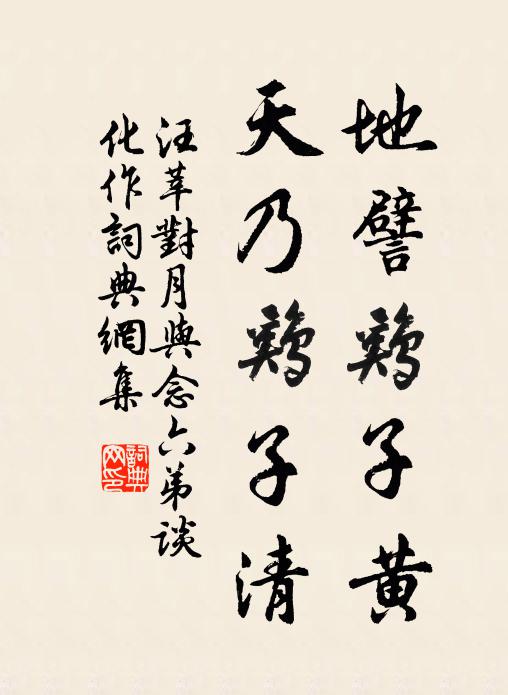 地譬鷄子黄
天乃鷄子清
汪莘對月與念六弟談
化作詞典網集
詞典
网印